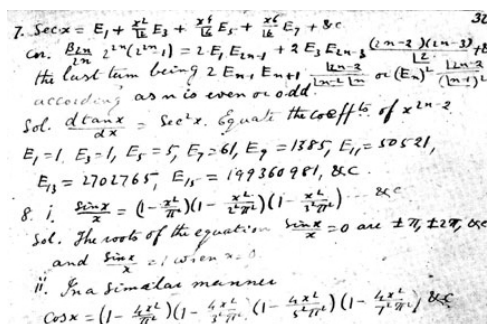 32
7. Sec x = E₁ + x²/⌊2 E₃ + x⁴/⌊4 E₅ + x⁶/⌊6 E₇ + &c.
Cor. B₂ₙ/2n 2²ⁿ(2²ⁿ-1) = 2E₁E₂ₙ₋₁ + 2E₃E₂ₙ₋₃ (2n-2)(2n-3)/⌊2 + &
the last term being 2Eₙ₋₁Eₙ₊₁ ⌊2n-2/⌊n-2⌊n or (Eₙ)² ⌊2n-2/(⌊n-1)²
according as n is even or odd.
Sol. d tan x/dx = Sec²x. Equate the coeffts of x²ⁿ⁻²
E₁=1, E₃=1, E₅=5, E₇=61, E₉=1385, E₁₁=50521,
E₁₃=2702765, E₁₅=199360981, &c.
8. i. Sin x/x = (1 - x²/π²)(1 - x²/2²π²)(1 - x²/3²π²) ... &c
Sol. The roots of the equation Sin x/x = 0 are ±π, ±2π, &c
and Sin x/x = 1 when x=0.
ii. In a similar manner
Cos x = (1 - 4x²/π²)(1 - 4x²/3²π²)(1 - 4x²/5²π²)(1 - 4x²/7²π²) &c